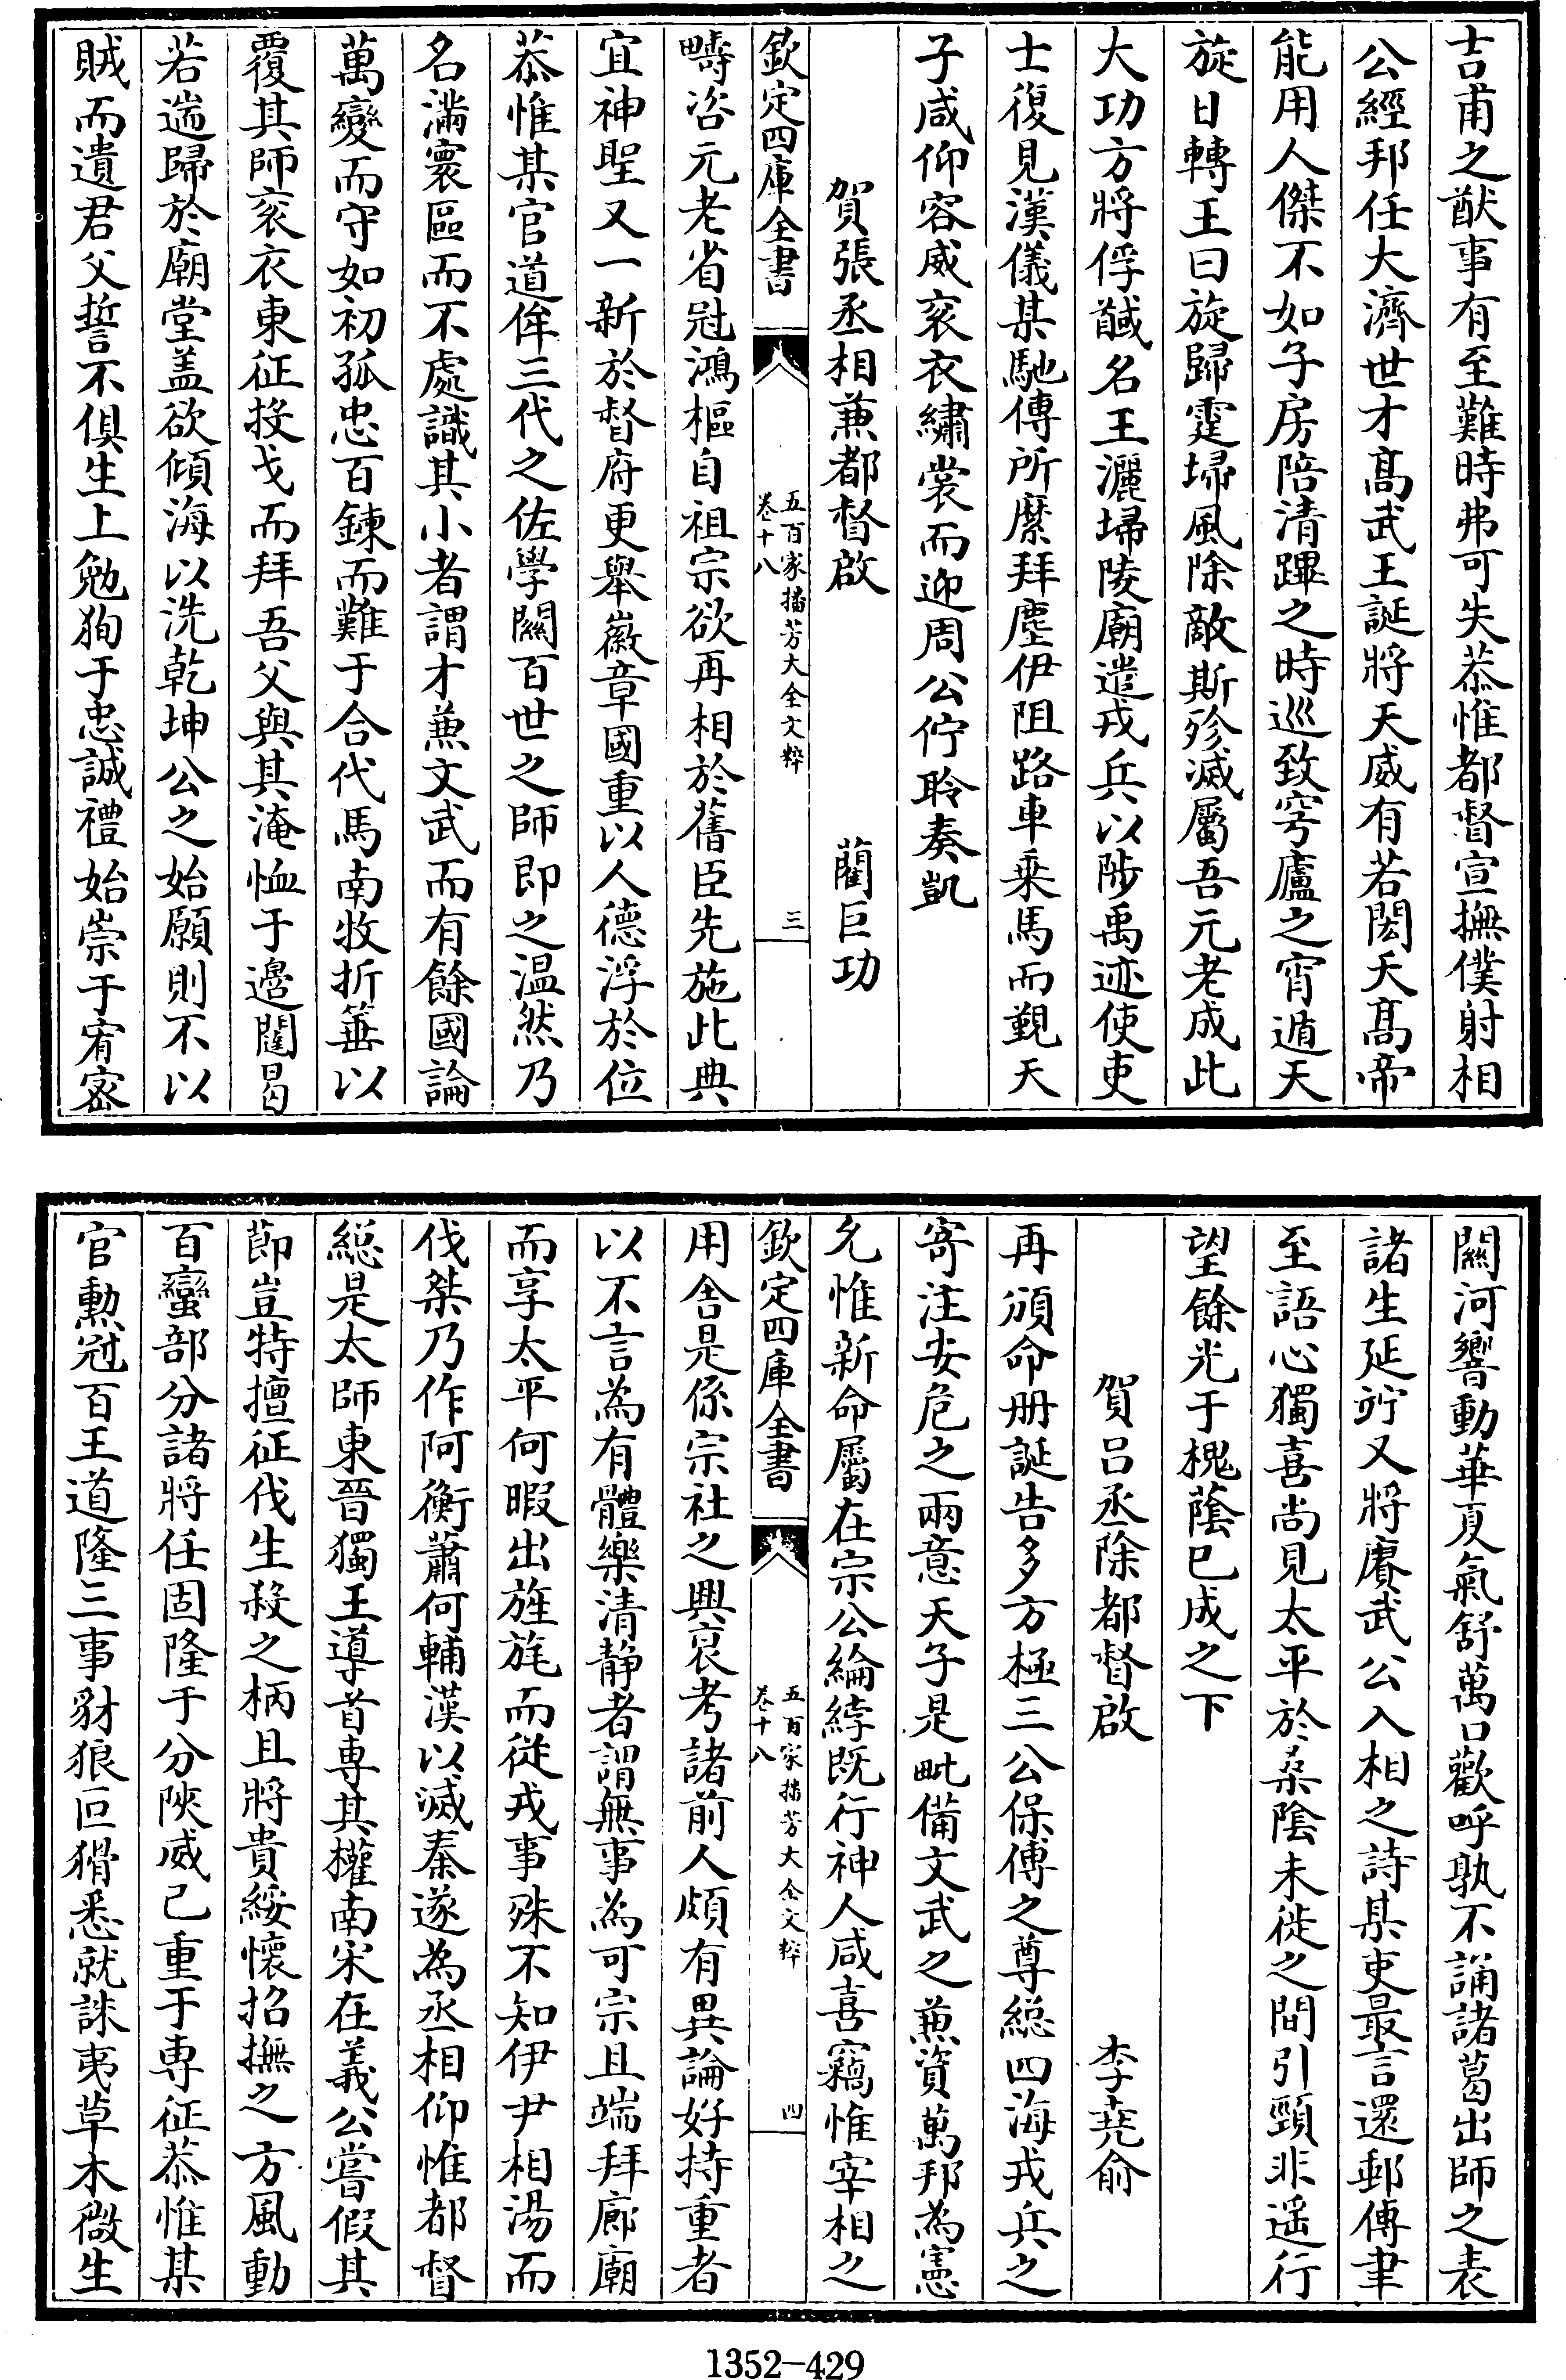 吉甫之猷事有至難時弗可失恭惟都督宣撫僕射相
公經邦任大濟世才髙武王誕將天威有若閎夭髙帝
能用人傑不如子房陪清蹕之時巡致穹廬之宵遁天
旋日轉王曰旋歸霆埽風除敵斯殄滅屬吾元老成此
大功方將俘馘名王灑埽陵廟遣戎兵以陟禹迹使吏
士復見漢儀某馳傳所縻拜塵伊阻路車乗馬而覲天
子咸仰容威衮衣繡裳而迎周公佇聆奏凱
賀張丞相兼都督啟 藺巨功
欽定四庫全書 五百家播芳大全文粹 卷十八 三
疇咨元老省冠鴻樞自祖宗欲再相於舊臣先施此典
宜神聖又一新於督府更舉徽章國重以人德浮於位
恭惟某官道侔三代之佐學闗百世之師即之温然乃
名滿寰區而不處識其小者謂才兼文武而有餘國論
萬變而守如初孤忠百鍊而難于合代馬南牧折箠以
覆其師衮衣東征投戈而拜吾父與其淹恤于邉閫曷
若遄歸於廟堂盖欲傾海以洗乾坤公之始願則不以
賊而遺君父誓不俱生上勉狥于忠誠禮始崇于宥密
闗河響動華夏氣舒萬口歡呼孰不誦諸葛出師之表
諸生延竚又將賡武公入相之詩某吏最言還郵傅聿
至語心獨喜尚見太平於桑隂未徙之間引頸非遥行
望餘光于槐蔭已成之下
賀吕丞除都督啟 李堯俞
再頒命册誕告多方極三公保傅之尊総四海戎兵之
寄注安危之兩意天子是毗備文武之兼資萬邦為憲
允惟新命屬在宗公綸綍既行神人咸喜竊惟宰相之
欽定四庫全書 五百家播芳大全文粹 卷十八 四
用舍是係宗社之興衰考諸前人頗有異論好持重者
以不言為有體樂清静者謂無事為可宗且端拜廊廟
而享太平何暇出旌旄而從戎事殊不知伊尹相湯而
伐桀乃作阿衡蕭何輔漢以滅秦遂為丞相仰惟都督
総是太師東晉獨王導首専其權南宋在義公嘗假其
節豈特擅征伐生殺之柄且將貴綏懷招撫之方風動
百蠻部分諸將任固隆于分陜威已重于専征恭惟某
官勲冠百王道隆三事豺狼巨猾悉就誅夷草木微生
1352-429